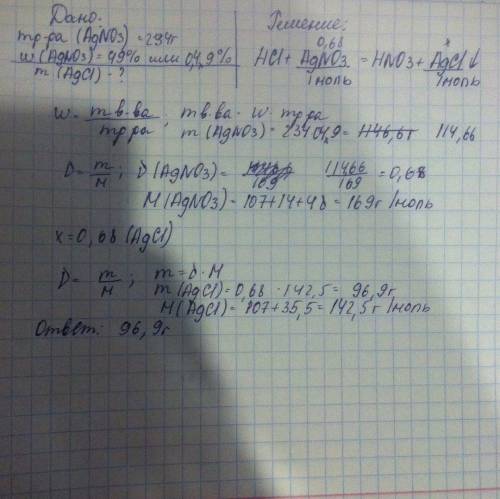 Дано:
mр-ра (AgNO3) = 234г
w (AgNO3) = 49% или 0,4,9%
m (AgCl) - ?
Решение:
0,68 x
HCl + AgNO3 = HNO3 + AgCl↓
1моль 1моль
w = m в-ва / mр-ра ; m в-ва = w · mр-ра
m (AgNO3) = 234 · 0,49 = 1146,6г 114,66
ν = m/M ; ν (AgNO3) = 114,66/169 = 0,68
M (AgNO3) = 107+14+48 = 169г/моль
x = 0,68 (AgCl)
ν = m/M ; m = ν · M
m (AgCl) = 0,68 · 142,5 = 96,9г
M (AgCl) = 107+35,5 = 142,5г/моль
Ответ: 96,9г